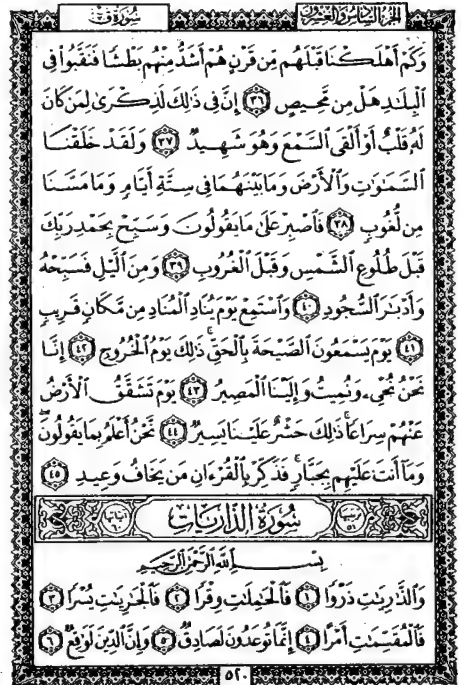 الجزء السادس والعشرون
سُورَةُ قٓ
وَكَمْ أَهْلَكْنَا قَبْلَهُم مِّن قَرْنٍ هُمْ أَشَدُّ مِنْهُم بَطْشًا فَنَقَّبُوا۟ فِى
ٱلْبِلَٰدِ هَلْ مِن مَّحِيصٍ ٣٦ إِنَّ فِى ذَٰلِكَ لَذِكْرَىٰ لِمَن كَانَ
لَهُۥ قَلْبٌ أَوْ أَلْقَى ٱلسَّمْعَ وَهُوَ شَهِيدٌ ٣٧ وَلَقَدْ خَلَقْنَا
ٱلسَّمَٰوَٰتِ وَٱلْأَرْضَ وَمَا بَيْنَهُمَا فِى سِتَّةِ أَيَّامٍ وَمَا مَسَّنَا
مِن لُّغُوبٍ ٣٨ فَٱصْبِرْ عَلَىٰ مَا يَقُولُونَ وَسَبِّحْ بِحَمْدِ رَبِّكَ
قَبْلَ طُلُوعِ ٱلشَّمْسِ وَقَبْلَ ٱلْغُرُوبِ ٣٩ وَمِنَ ٱلَّيْلِ فَسَبِّحْهُ
وَأَدْبَٰرَ ٱلسُّجُودِ ٤٠ وَٱسْتَمِعْ يَوْمَ يُنَادِ ٱلْمُنَادِ مِن مَّكَانٍ قَرِيبٍ
٤١ يَوْمَ يَسْمَعُونَ ٱلصَّيْحَةَ بِٱلْحَقِّ ۚ ذَٰلِكَ يَوْمُ ٱلْخُرُوجِ ٤٢ إِنَّا
نَحْنُ نُحْىِۦ وَنُمِيتُ وَإِلَيْنَا ٱلْمَصِيرُ ٤٣ يَوْمَ تَشَقَّقُ ٱلْأَرْضُ
عَنْهُمْ سِرَاعًا ۚ ذَٰلِكَ حَشْرٌ عَلَيْنَا يَسِيرٌ ٤٤ نَّحْنُ أَعْلَمُ بِمَا يَقُولُونَ ۖ
وَمَآ أَنتَ عَلَيْهِم بِجَبَّارٍ ۖ فَذَكِّرْ بِٱلْقُرْءَانِ مَن يَخَافُ وَعِيدِ ٤٥
ترتيبها ٥١ سُورَةُ الذَّارِيَاتِ آياتها
بِسْمِ ٱللَّهِ ٱلرَّحْمَٰنِ ٱلرَّحِيمِ
وَٱلذَّٰرِيَٰتِ ذَرْوًا ١ فَٱلْحَٰمِلَٰتِ وِقْرًا ٢ فَٱلْجَٰرِيَٰتِ يُسْرًا ٣
فَٱلْمُقَسِّمَٰتِ أَمْرًا ٤ إِنَّمَا تُوعَدُونَ لَصَادِقٌ ٥ وَإِنَّ ٱلدِّينَ لَوَٰقِعٌ ٦
٥٢٠